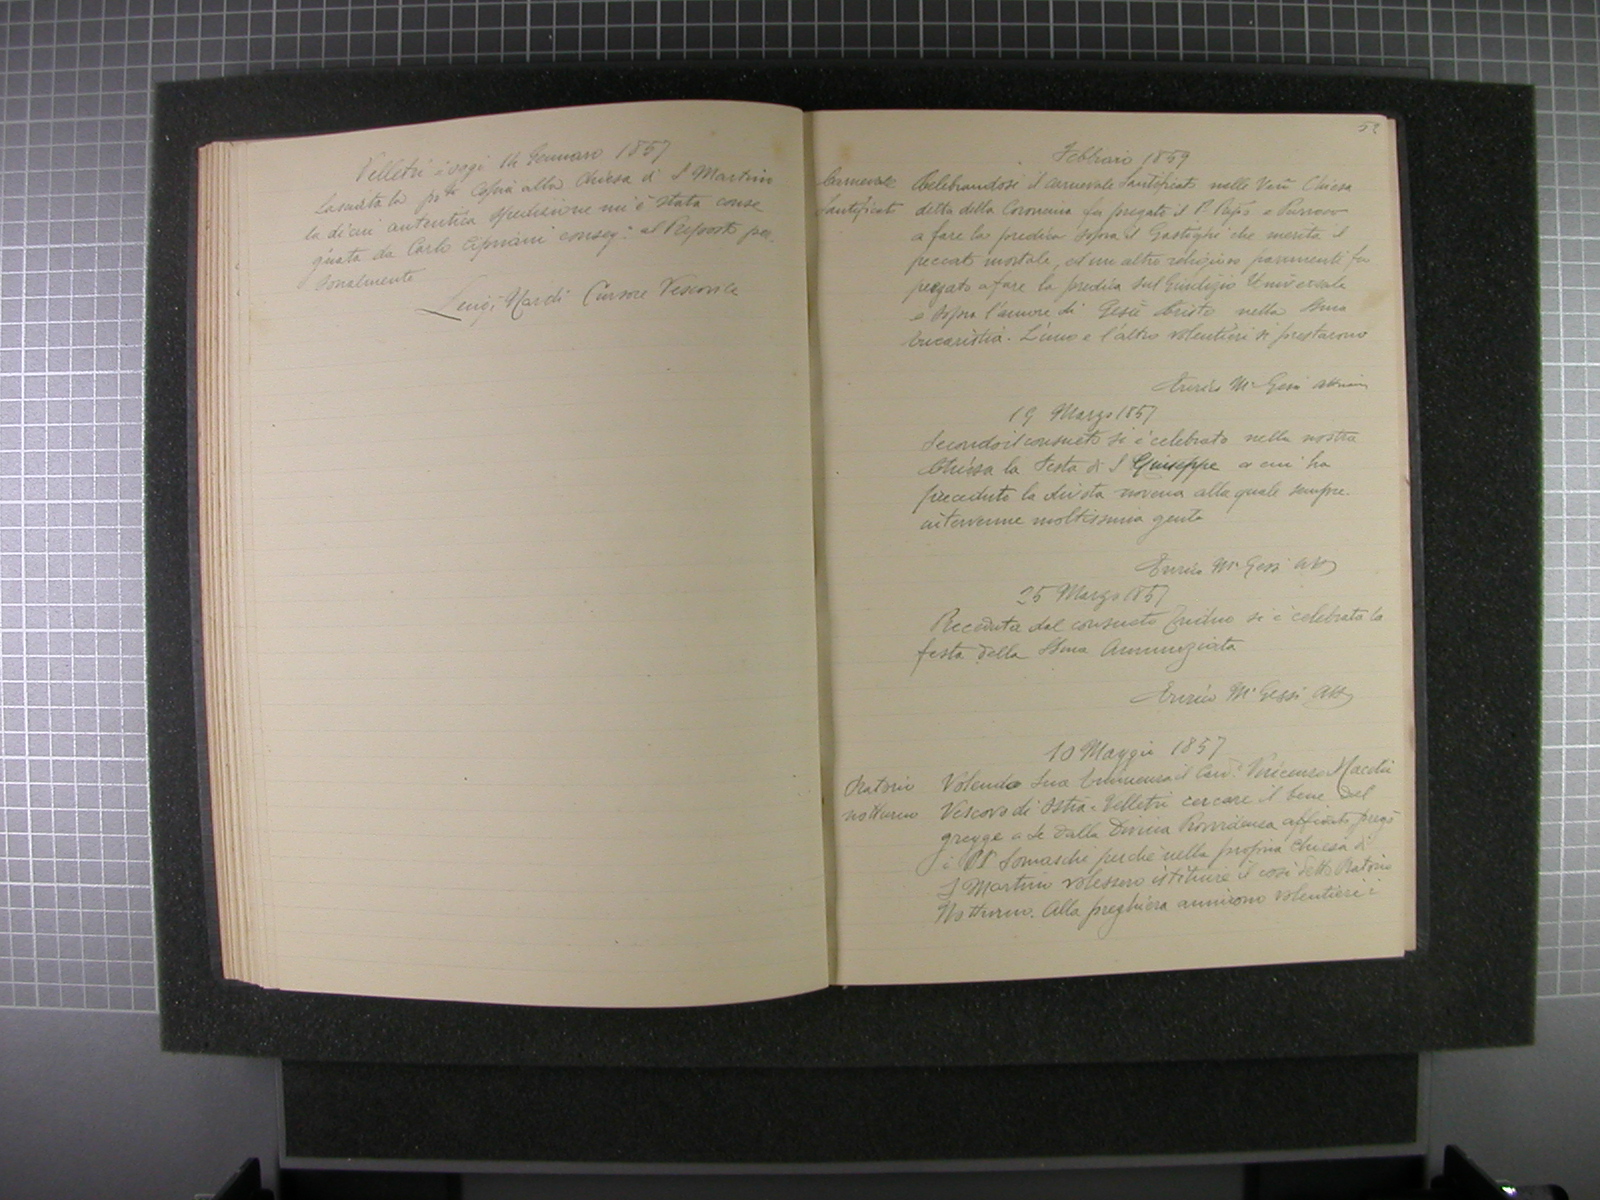 Velletri i oggi 14 Gennaro 1857
Lasciata la pte copia alla Chiesa di S Martino
la di cui autentica spedizione mi è stata conse
gnata da Carlo Cipriani conseg: al Preposto per
sonalmente
Luigi Nardi Cursore Vescovile
52
Febbraio 1859
Carnevale
Santificato
Celebrandosi il carnevale Santificato nella Ven Chiesa
detta della Coroncina fu pregato il P. Prep° e Parroco
a fare la predica sopra il Gastighi che merita il
peccato mortale, ed un altro religioso parimenti fu
pregato a fare la predica sul Giudizio Universale
e sopra l'amore di Gesù Cristo nella Ssma
Eucaristia. L'uno e l'altro volentieri si prestarono
Enrico M. Gessi
19 Marzo 1857
Secondo il consueto si è celebrata nella nostra
Chiesa la Festa di S Giuseppe a cui ha
preceduto la divota novena alla quale sempre
intervenne moltissima gente
Enrico M. Gessi Att
25 Marzo 1857
Preceduta dal consueto Triduo si è celebrata la
festa della Ssma Annunziata
Enrico M. Gessi Att
10 Maggio 1857
Oratorio
notturno
Volendo Sua Eminenza il Card: Vincenzo Macchi
Vescovo di Ostia e Velletri cercare il bene del
gregge a Se dalla Divina Provvidenza affidato pregò
i PP Somaschi perchè nella propria Chiesa di
S Martino volessero istituire il così detto Oratorio
Notturno. Alla preghiera annuirono volentieri i